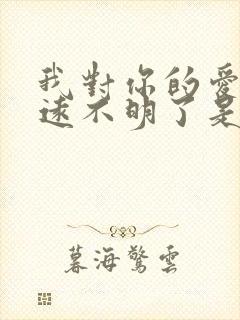 我對你的愛
遠不明了是
暮海驚雲